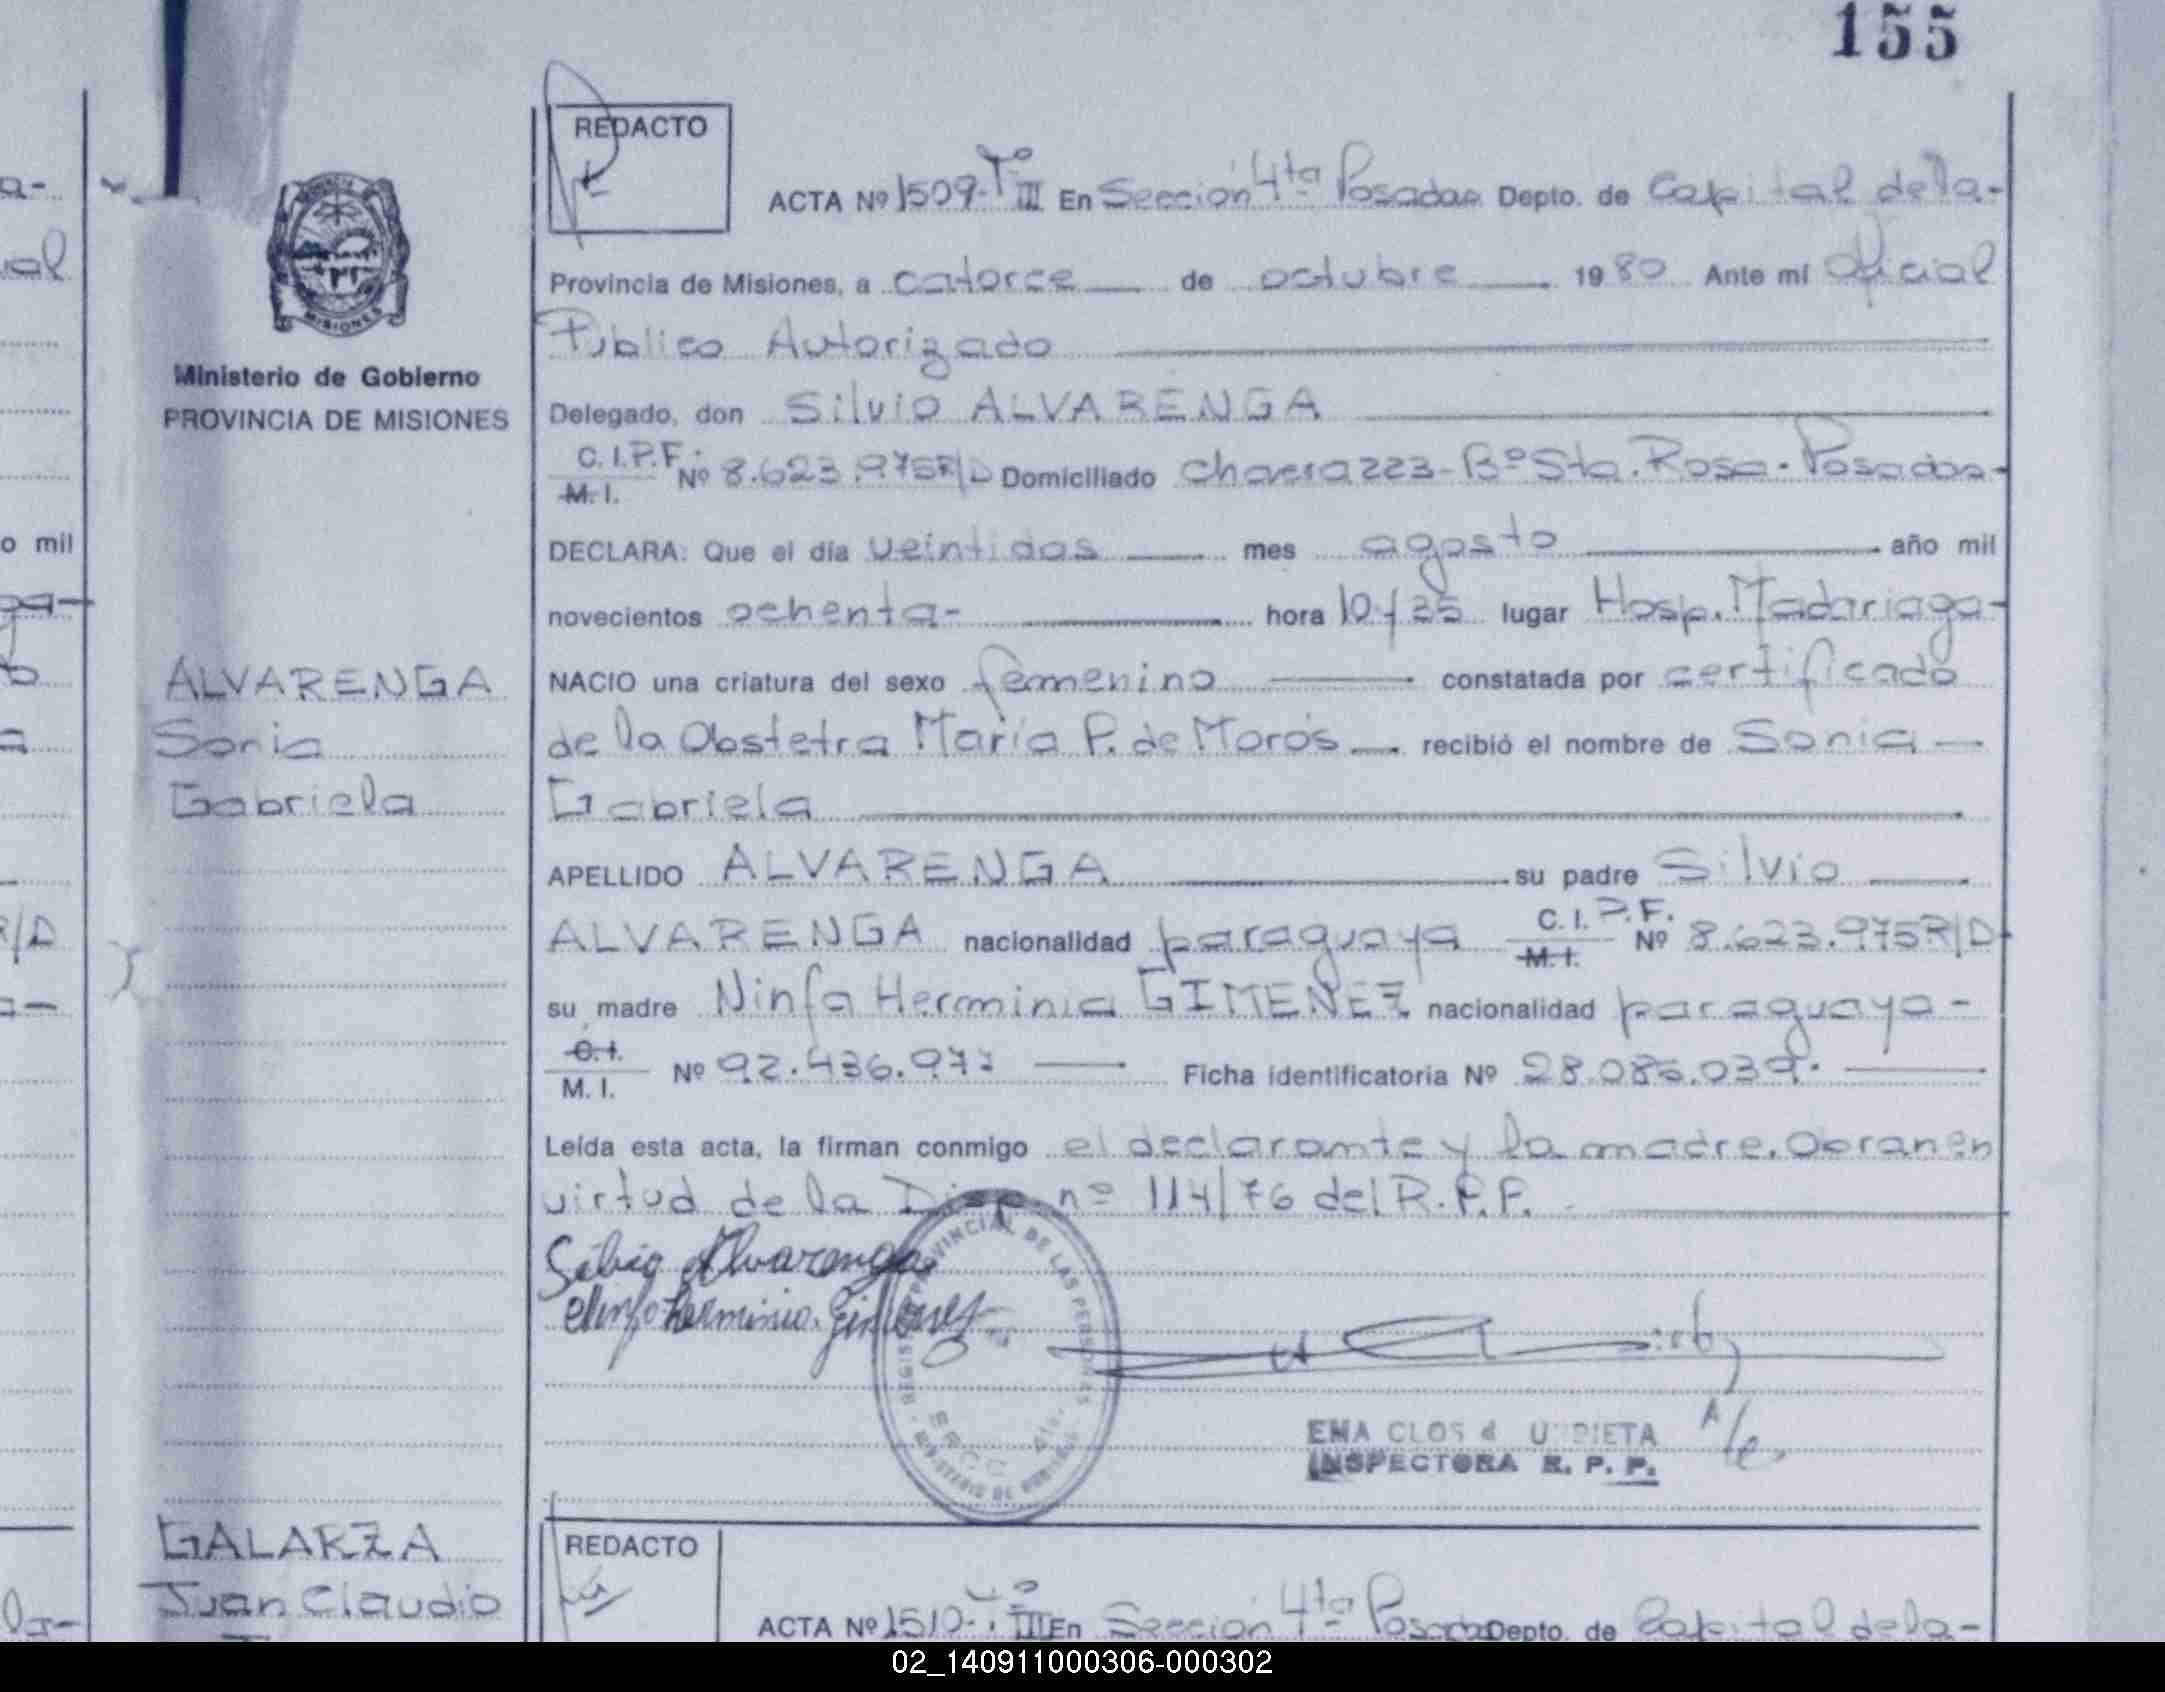 155
REDACTO
ACTA Nº 1509-Tº III En Sección 4ta Posadas Depto. de Capital de la-
Provincia de Misiones, a catorce de octubre 1980 Ante mí Oficial
Público Autorizado
Ministerio de Gobierno
PROVINCIA DE MISIONES
MISIONES
Delegado, don Silvio ALVARENGA
C.I.P.F. M.I. Nº 8.623.975R/D Domiciliado Chavera 223-Bº Sta. Rosa-Posadas-
DECLARA: Que el día veintidos mes agosto año mil
novecientos ochenta- hora 10/35 lugar Hosp. Madariaga-
ALVARENGA
Sonia
Gabriela
NACIO una criatura del sexo femenino constatada por certificado
de la Obstetra María P. de Morós recibió el nombre de Sonia
Gabriela
APELLIDO ALVARENGA su padre Silvio
ALVARENGA nacionalidad paraguaya C.I.P.F. M.I. Nº 8.623.975R/D
su madre Ninfa Herminia GIMENEZ nacionalidad paraguaya-
C.I. M.I. Nº 92.436.977 Ficha identificatoria Nº 28.085.039.
Leída esta acta, la firman conmigo el declarante y la madre. Obran en
virtud de la Disp. nº 114/76 del R.P.P.
Silvio Alvarenga
Ninfa Herminia Gimenez
PROVINCIAL DE LAS PERSONAS
EMA CLOS d
INSPECTORA R. P. P.
GALARZA
Juan Claudio
REDACTO
ACTA Nº 1510-Tº III En Sección 4ta Posadas Depto. de Capital de la-
02_140911000306-000302